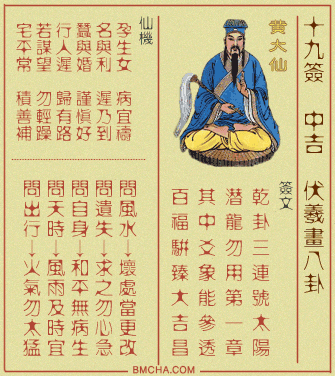 十九簽 中吉 伏羲畫八卦
黃大仙
簽文
乾卦三連號太陽
潛龍勿用第一章
其中爻象能參透
百福駢臻大吉昌
仙機
孕生女 病宜禱
名與利 遲乃到
蠶與婚 謹慎好
行人遲 歸有路
若謀望 勿輕躁
宅平常 積善補
問風水→壞處當更改
問遺失→求之勿心急
問自身→和平無病生
問天時→風雨及時宜
問出行→火氣勿太猛
BMCHA.COM